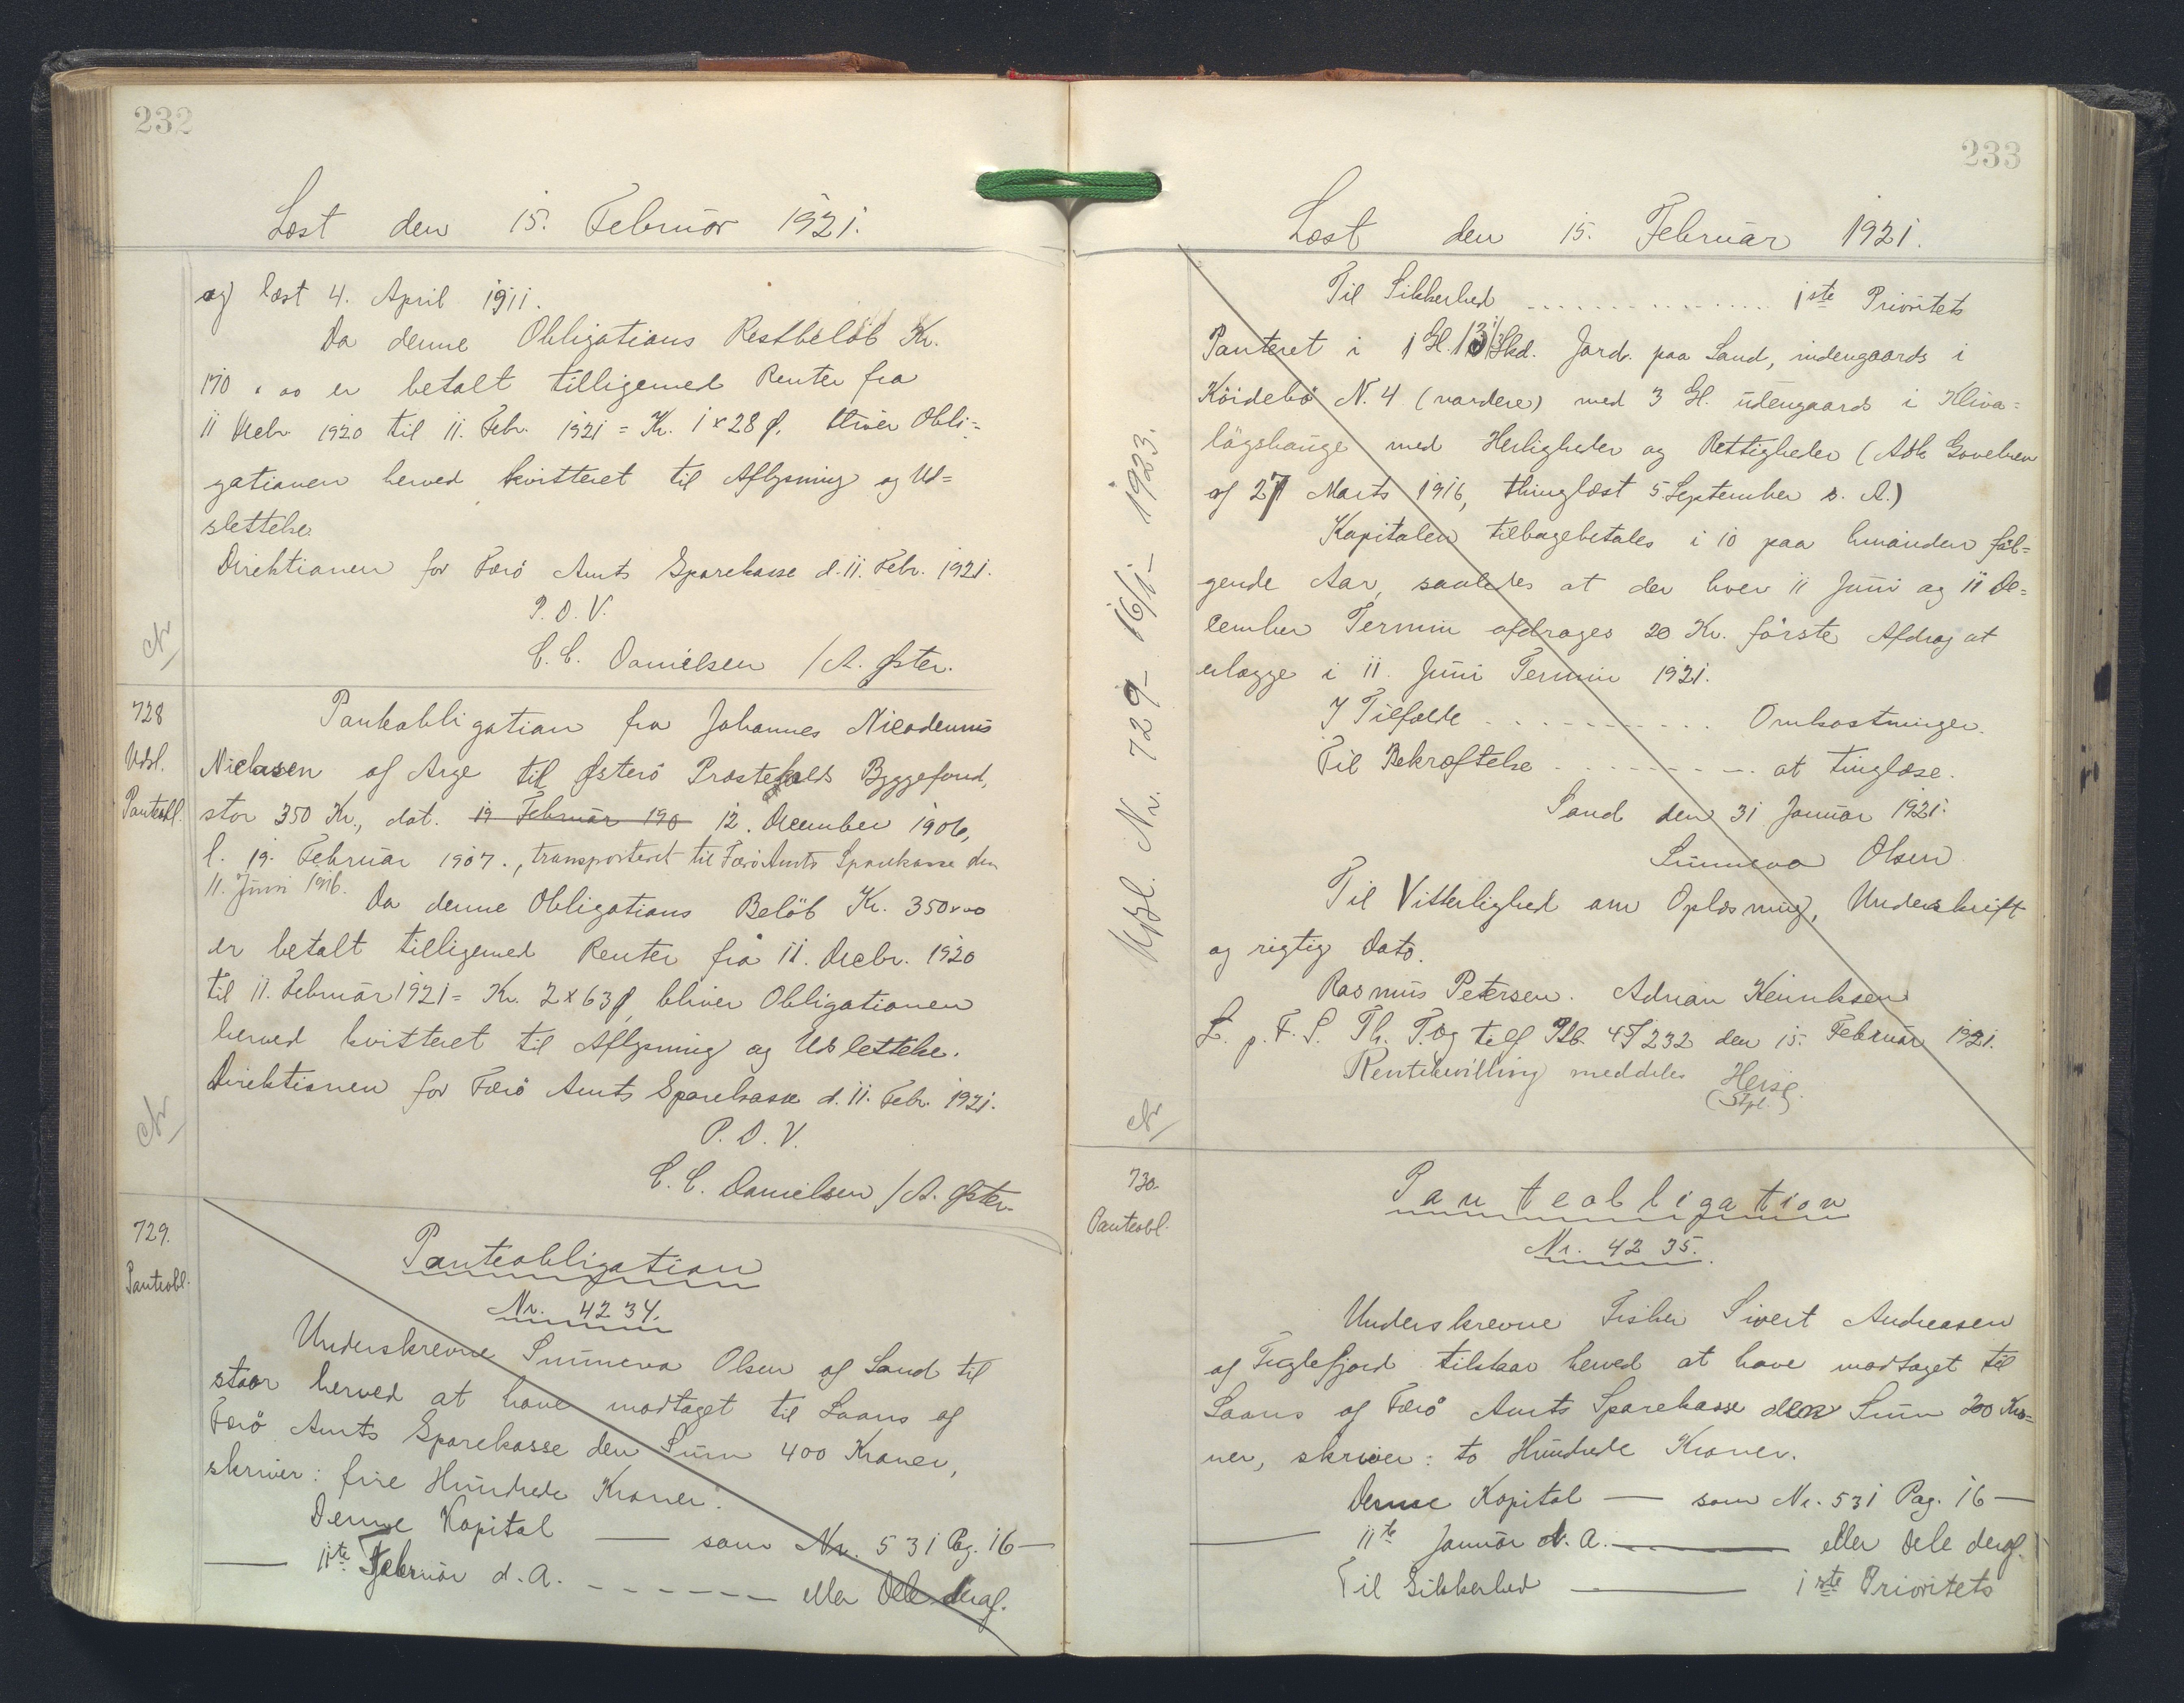 232
Læst den 15. Februar 1921.
og læst 4. April 1911.
Da denne Obligations Restbeløb Kr.
170 " oo er betalt tilligemed Renter fra
11 Decbr 1920 til 11. Febr. 1921 = Kr. 1 x 28 ø, bliver Obli=
gationen herved kvitteret til Aflysning og Ud=
slettelse.
Direktionen for Færö Amts Sparekasse d. 11. Febr. 1921.
P. D. V.
C. C. Danielsen / A. Øster.
728
Udsl.
Panteobl.
Panteobligation fra Johannes Nicodemus
Niclasen af Arge til Østerö Præstegjælds Byggefond,
stor 350 Kr., dat. 19 Februar 190 12. December 1906,
l. 19. Februar 1907., transporteret til Færö Amts Sparekasse den
11. Juni 1916.
Da denne Obligations Beløb Kr. 350 x oo
er betalt tilligemed Renter fra 11. Decbr. 1920
til 11. Februar 1921 = Kr. 2 x 63 ø, bliver Obligationen
herved kvitteret til Aflysning og Udslettelse.
Direktionen for Færö Amts Sparekasse d. 11. Febr. 1921.
P. D. V.
C. C. Danielsen / A. Øster.
729.
Panteobl.
Panteobligation
Nr. 4234.
Underskrevne Sunneva Olsen af Sand til
staar herved at have modtaget til Laans af
Færö Amts Sparekasse den Sum 400 Kroner,
skriver: fire Hundrede Kroner.
Denne Kapital — som Nr. 531 Pag. 16 —
— 11te Februar d. A. - - - - - - eller Dele deraf.
233
Læst den 15. Februar 1921.
Udsl. Nr. 729 - 16/1 - 1923.
Til Sikkerhed . . . . . . . . . . . . . . . 1ste Prioritets
Panteret i 1 Gl. 13 1/3 Skd. Jord paa Sand, indengaards i
Köidebö N. 4 (vardere) med 3 Gl. udengaards i Kliva=
lögshauge med Herligheder og Rettigheder (Adk Gavebrev
af 27 Marts 1916, thinglæst 5 September s. A.)
Kapitalen tilbagebetales i 10 paa hinanden føl=
gende Aar, saaledes at der hver 11 Juni og 11 De=
cember Termin afdrages 20 Kr. første Afdrag at
erlægge i 11. Juni Termin 1921.
I Tilfælde . . . . . . . . . . . Omkostninger.
Til Bekræftelse - - - - - - - - . at tinglæse.
Sand den 31 Januar 1921.
Sunneva Olsen
Til Vitterlighed om Oplæsning, Underskrift
og rigtig Dato.
Rasmus Petersen. Adrian Henriksen
L. p. F. S. Th. T. og tilf Ptb. 45/232 den 15. Februar 1921.
Rentebevilling meddeles Heise.
(Stpl.)
730.
Panteobl.
Panteobligation
Nr. 4235.
Underskrevne Fisker Sivert Andreasen
af Fuglefjord tilstaar herved at have modtaget til
Laans af Færö Amts Sparekasse den Sum 200 Kro=
ner, skriver: to Hundrede Kroner.
Denne Kapital — som Nr. 531 Pag. 16 —
— 11te Januar d. A. — eller Dele deraf.
Til Sikkerhed — 1ste Prioritets